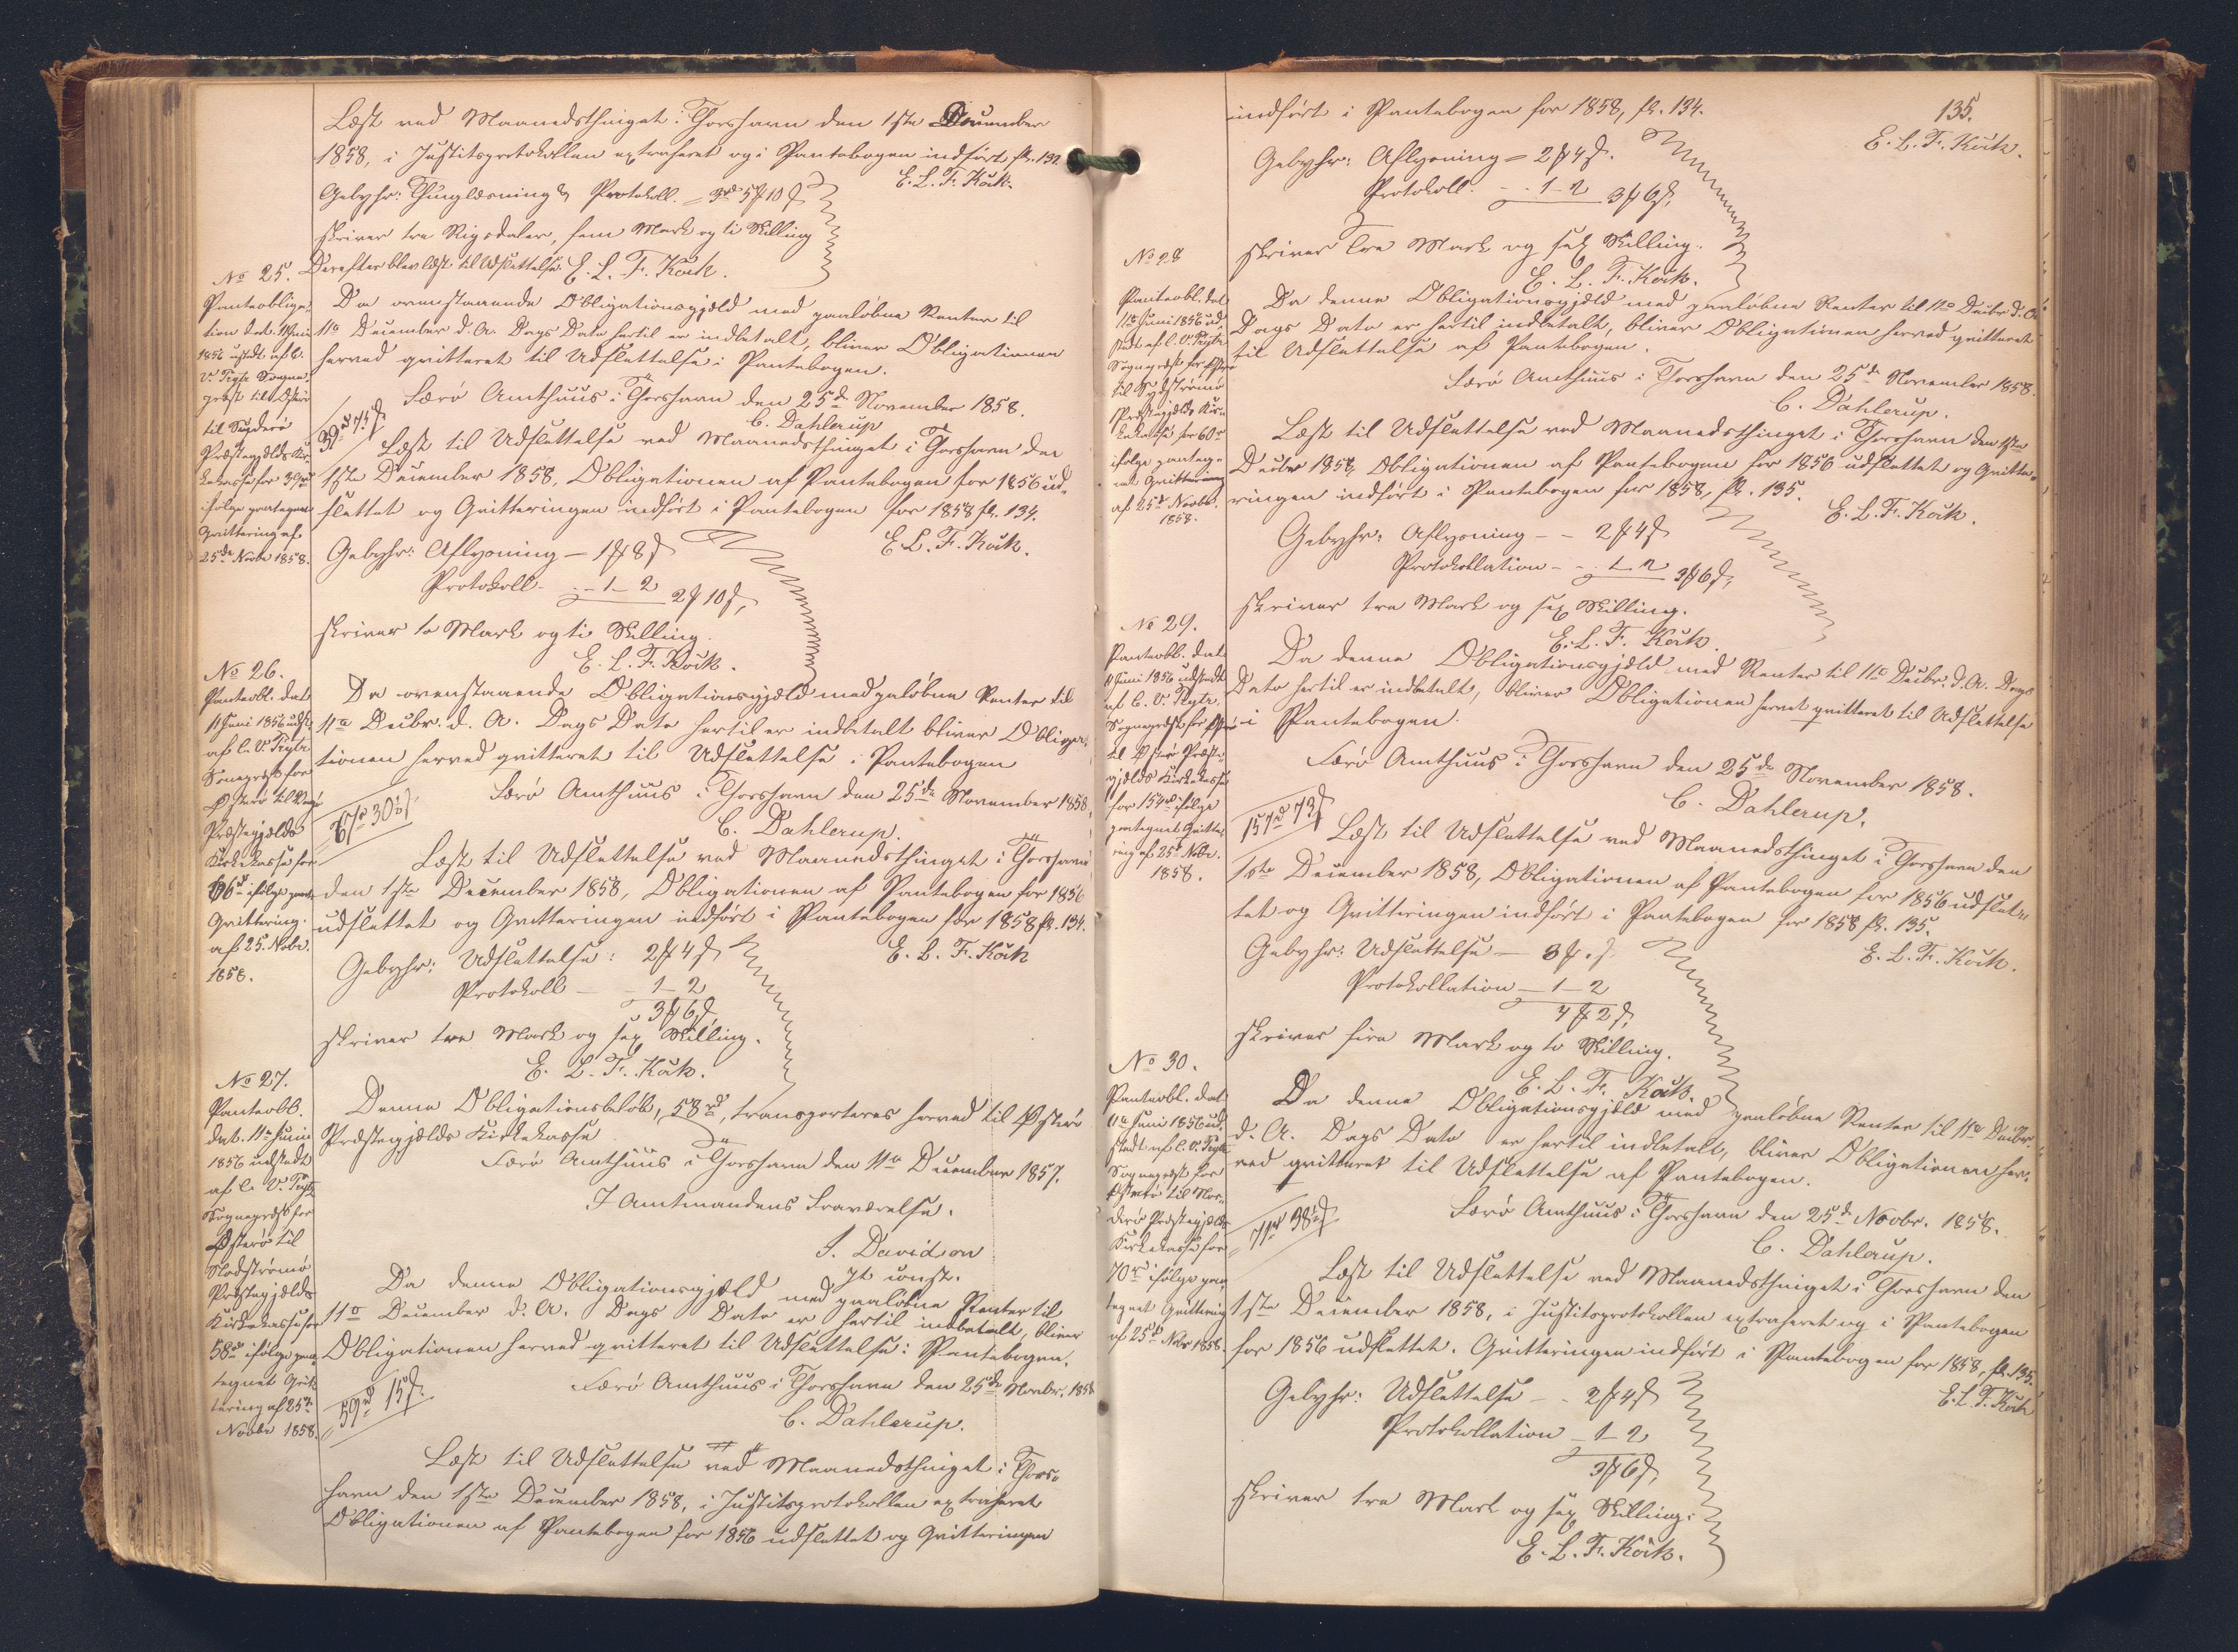 Læst ved Maanedsthinget i Thorshavn den 1ste December
1858, i Justitsprotokollen extraheret og i Pantebogen indført fl. 132.
E. L. F. Köck.
Gebyhr: Thinglæsning & Protokoll. = 3rd 5# 10 ß
skriver tre Rigsdaler, fem Mark og ti Skilling
Derefter blev læst til Udslettelse. E. L. F. Köck.
No 25.
Panteobliga-
tion dat. 11 Juni
1856 udstdt af C.
V. Prytz Sogne-
præst til Østerø
til Suderø
Præstegjælds Kir-
kekasse for 39rd
ifølge paategnet
Qvittering af
25de Novbr 1858.
Da ovenstaaende Obligationsgjæld med paaløbne Renter til
11te December d. A. Dags Dato hertil er indbetalt, bliver Obligationen
herved qvitteret til Udslettelse i Pantebogen.
Færø Amthuus i Thorshavn den 25de November 1858.
C. Dahlerup
39rd 75ß
Læst til Udslettelse ved Maanedsthinget i Thorshavn den
1ste December 1858, Obligationen af Pantebogen for 1856 ud-
slettet og Qvitteringen indført i Pantebogen for 1858 fl. 134.
E. L. F. Köck.
Gebyhr: Aflysning — 1# 8ß
Protokoll. - - 1 - 2
2# 10ß,
skriver to Mark og ti Skilling.
E. L. F. Köck.
No 26.
Panteobl. dat
11 Juni 1856 udst.
af C. V. Prytz
Sognepræst for
Østerø til Vaagø
Præstegjælds
Kirkekasse for
66rd ifølge paat.
Qvittering
af 25. Nobr.
1858.
Da ovenstaaende Obligationsgjæld med paaløbne Renter til
11te Decbr. d. A. Dags Dato hertil er indbetalt bliver Obliga-
tionen herved qvitteret til Udslettelse i Pantebogen
Færø Amthuus i Thorshavn den 25de November 1858.
C. Dahlerup.
67rd 30½ß
Læst til Udslettelse ved Maanedsthinget i Thorshavn
den 1ste December 1858, Obligationen af Pantebogen for 1856
udslettet og Qvitteringen indført i Pantebogen for 1858 fl. 134.
E. L. F. Köck
Gebyhr: Udslettelse: 2# 4ß
Protokoll — - 1 - 2
3# 6ß,
skriver tre Mark og sex Skilling.
E. L. F. Köck.
No 27.
Panteobl.
dat. 11te Juni
1856 udstedt
af C. V. Prytz
Sognepræst for
Østerø til
Nordstrømø
Præstegjælds
Kirkekasse for
58rd ifølge paa-
tegnet Qvit-
tering af 25de
Novbr 1858.
Denne Obligationsbeløb, 58rd, transporteres herved til Østerø
Præstegjælds Kirkekasse
Færø Amthuus i Thorshavn den 11te December 1857.
I Amtmandens Fraværelse.
S. Davidson
Jt const.
Da denne Obligationsgjæld med paaløbne Renter til
11te December d. A. Dags Dato er hertil indbetalt, bliver
Obligationen herved qvitteret til Udslettelse i Pantebogen.
Færø Amthuus i Thorshavn den 25de Novbr. 1858
C. Dahlerup.
59rd 15ß
Læst til Udslettelse ved Maanedsthinget i Thors-
havn den 1ste December 1858, i Justitsprotokollen extraheret
Obligationen af Pantebogen for 1856 udslettet og Qvitteringen
135.
indført i Pantebogen for 1858, fl. 134.
E. L. F. Köck.
Gebyhr: Aflysning = 2# 4ß.
Protokoll. - - 1 - 2
3# 6ß,
skriver tre Mark og sex Skilling.
E. L. F. Köck.
No 28
Panteobl. dat
11te Juni 1856 ud-
stedt af C. V. Prytz
Sognepræst for Østerø
til Sydstrømø
Præstegjælds Kir-
kekasse for 60rd
ifølge paateg-
net Qvittering
af 25de Novbr.
1858.
Da denne Obligationsgjæld med paaløbne Renter til 11te Decbr d. A.
Dags Dato er hertil indbetalt, bliver Obligationen herved qvitteret
til Udslettelse af Pantebogen.
Færø Amthuus i Thorshavn den 25de November 1858.
C. Dahlerup.
Læst til Udslettelse ved Maanedsthinget i Thorshavn den 1ste
Decbr 1858, Obligationen af Pantebogen for 1856 udslettet og Qvitte-
ringen indført i Pantebogen for 1858, fl. 135.
E. L. F. Köck.
Gebyhr: Aflysning - - 2# 4ß
Protokollation - - 1 - 2
3# 6ß,
skriver tre Mark og sex Skilling.
E. L. F. Köck.
No 29.
Panteobl. dat
11 Juni 1856 udstedt
af C. V. Prytz,
Sognepræst for Østerø
til Østerø Præste-
gjælds Kirkekasse
for 154rd ifølge
paategnet Qvitte-
ring af 25de Nobr.
1858.
Da denne Obligationsgjæld med Renter til 11te Decbr. d. A. Dags
Dato hertil er indbetalt, bliver Obligationen hervet qvitteret til Udslettelse
i Pantebogen.
Færø Amthuus i Thorshavn den 25de November 1858.
C. Dahlerup.
157rd 73ß
Læst til Udslettelse ved Maanedsthinget i Thorshavn den
1ste December 1858, Obligationen af Pantebogen for 1856 udslet-
tet og Qvitteringen indført i Pantebogen for 1858 fl. 135.
E. L. F. Köck.
Gebyhr: Udslettelse — 3# . ß
Protokollation — 1 - 2
4# 2ß,
skriver fire Mark og to Skilling.
E. L. F. Köck.
No 30.
Panteobl. dat
11te Juni 1856 ud-
stedt af C. V. Prytz
Sognepræst for
Østerø til Nor-
derø Præstegjælds
Kirkekasse for
70rd ifølge paa-
tegnet Qvittering
af 25de Nobr 1858.
Da denne Obligationsgjæld med paaløbne Renter til 11te Decbr
d. A. Dags Dato er hertil indbetalt, bliver Obligationen her-
ved qvitteret til Udslettelse af Pantebogen.
Færø Amthuus i Thorshavn den 25de Novbr. 1858.
C. Dahlerup.
71rd 38½ß
Læst til Udslettelse ved Maanedsthinget i Thorshavn den
1ste December 1858, i Justitsprotokollen extraheret og i Pantebogen
for 1856 udslettet. Qvitteringen indført i Pantebogen for 1858, fl. 135.
E. L. F. Köck
Gebyhr: Udslettelse - - 2# 4ß
Protokollation - 1 - 2
3# 6ß,
skriver tre Mark og sex Skilling.
E. L. F. Köck.